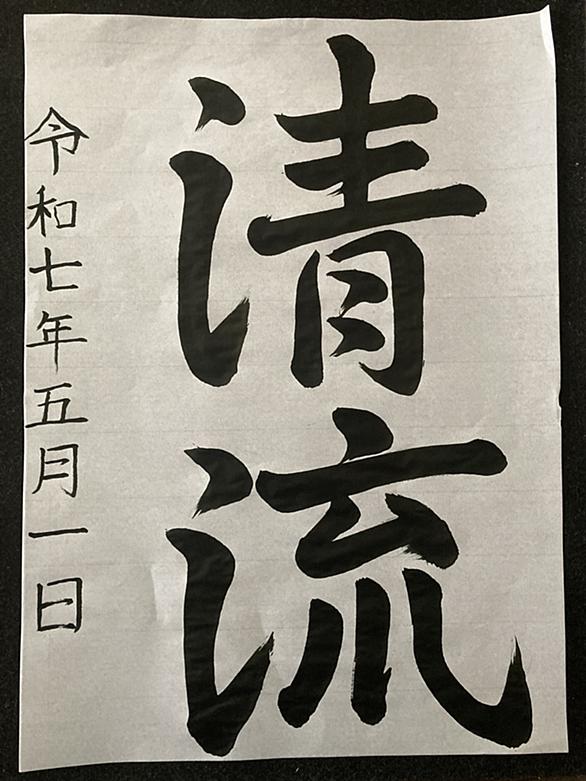 清流
令和七年五月一日